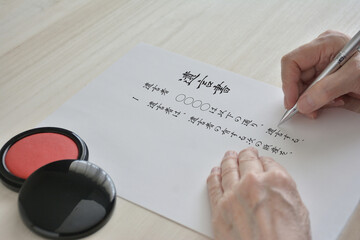 遺言書
遺言者 〇〇〇〇は以下の通り、遺言する。
1. 遺言者は、遺言者の有する次の財産を、